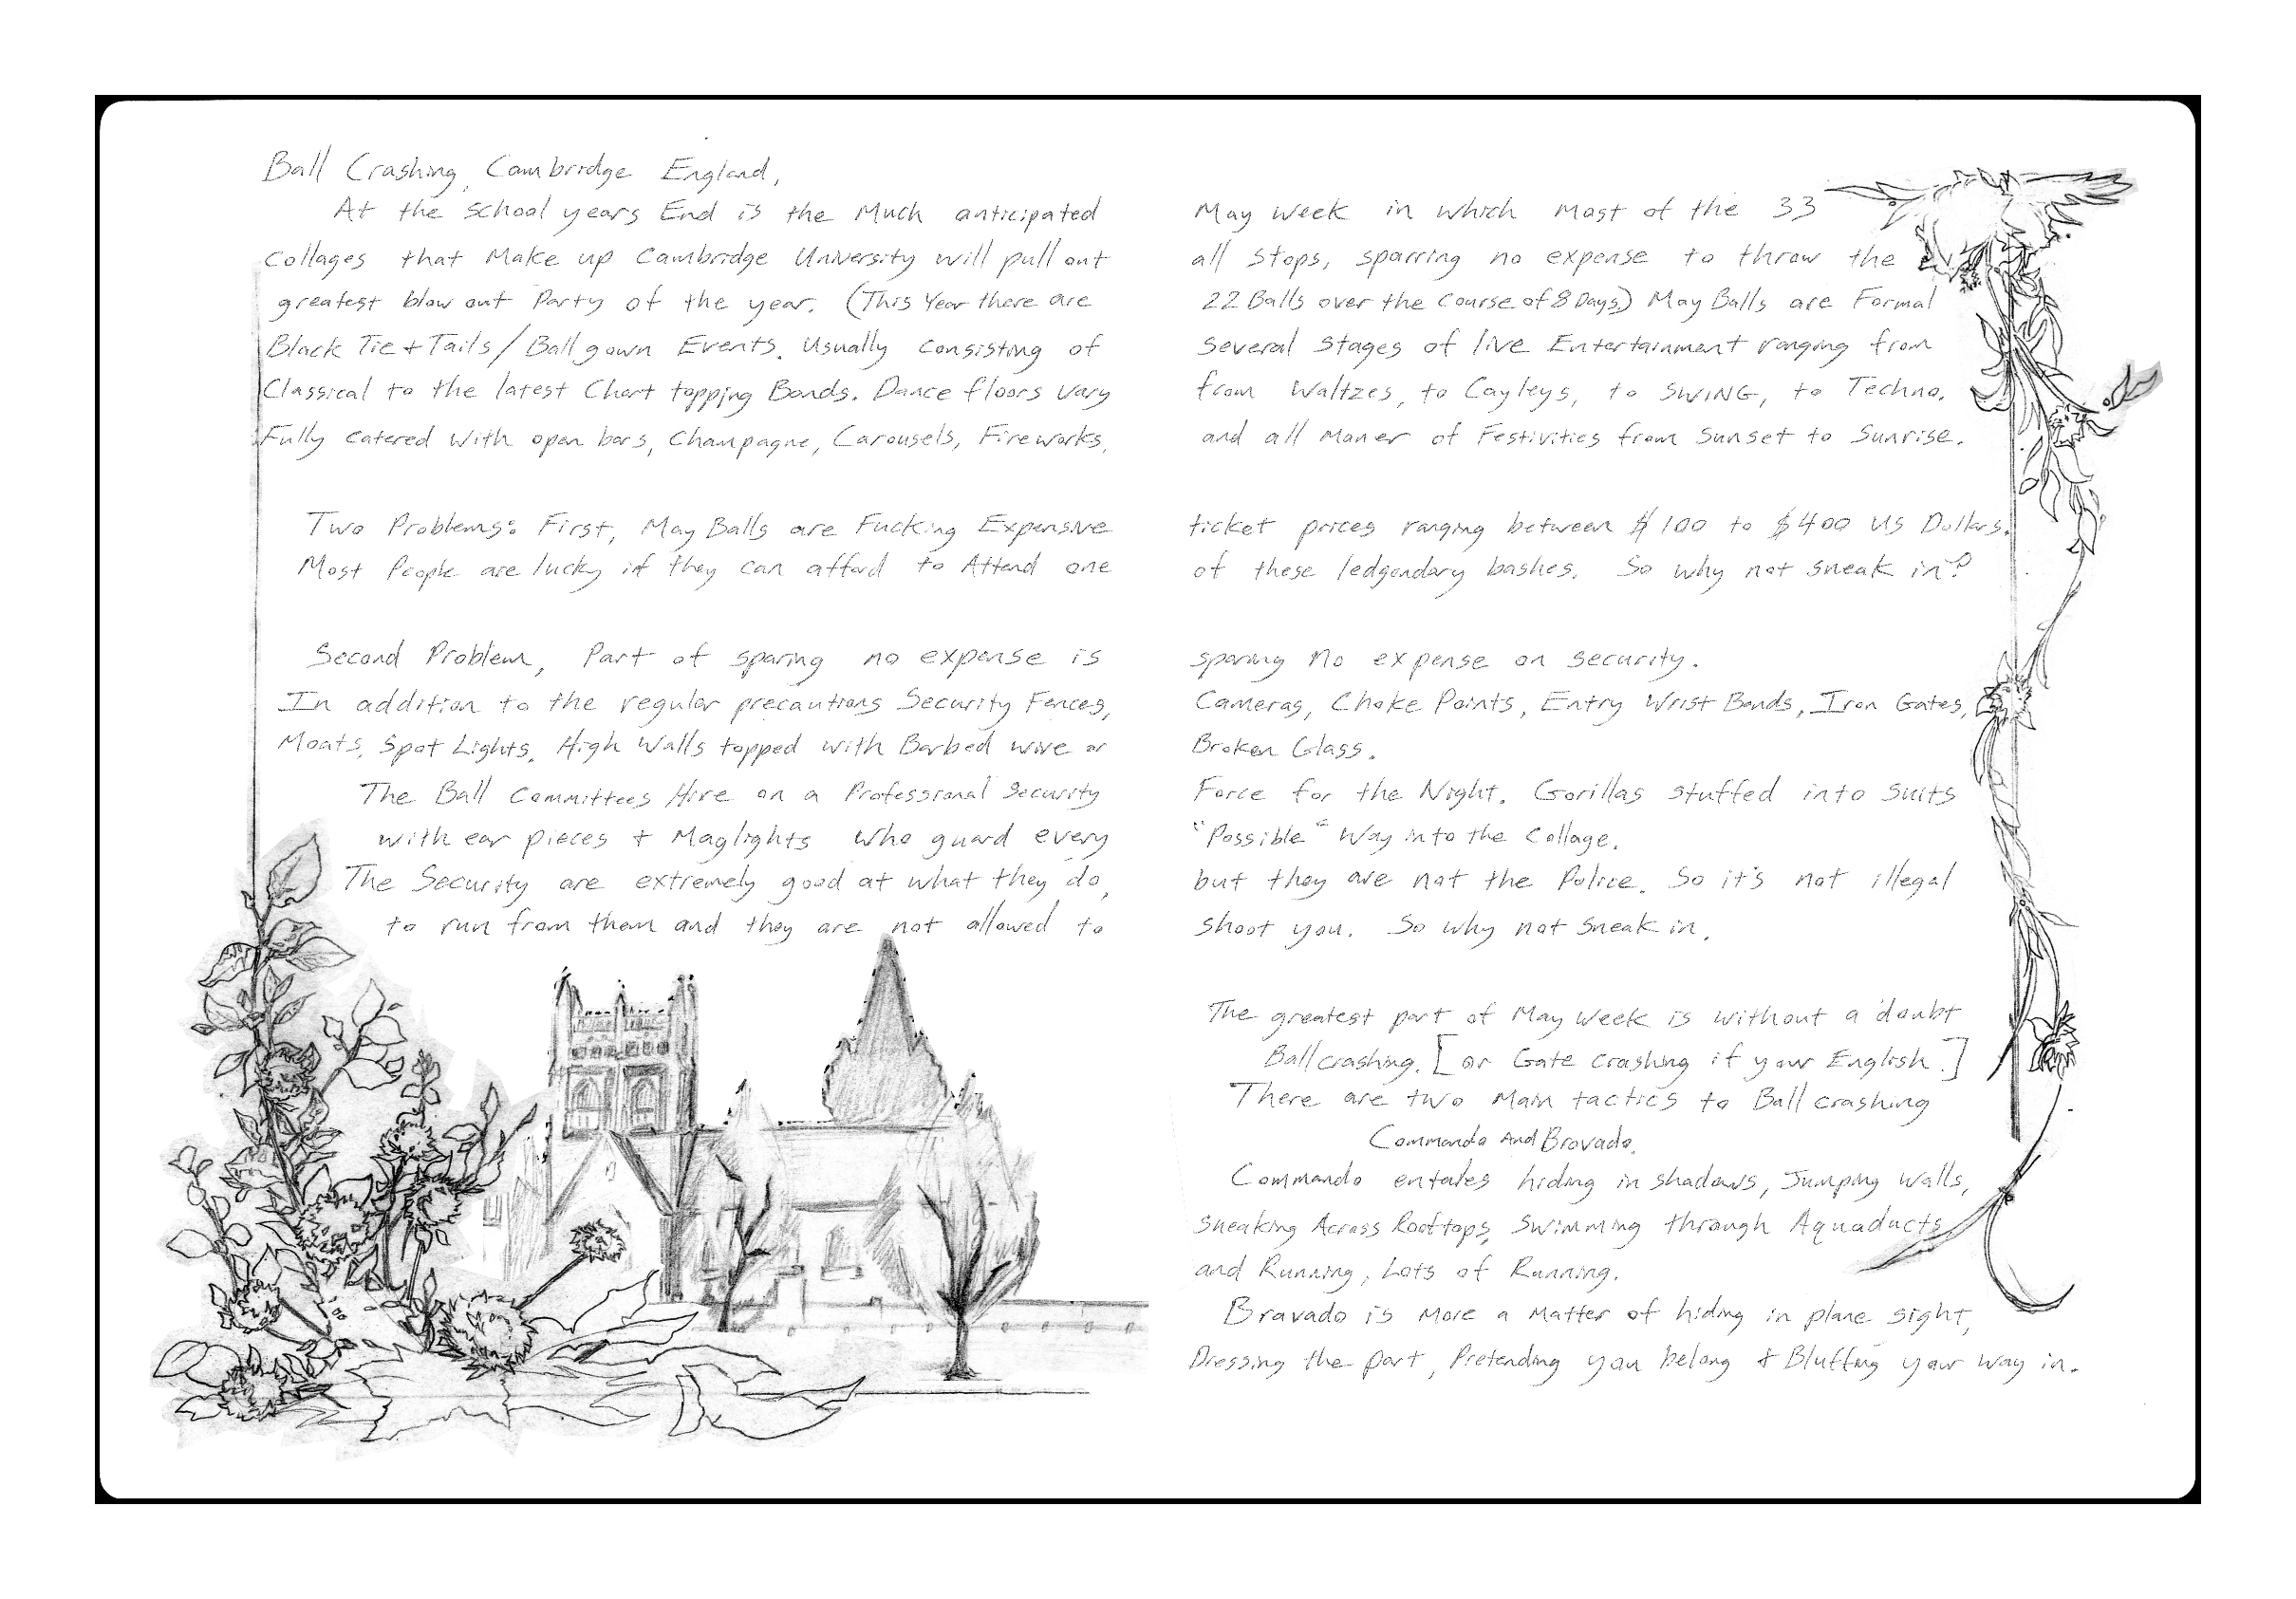 Ball Crashing, Cambridge England,
At the school years End is the Much anticipated May Week in which most of the 33
collages that Make up Cambridge University will pull out all stops, sparring no expense to throw the
greatest blow out Party of the year. (This Year there are 22 Balls over the Course of 8 Days) May Balls are Formal
Black Tie + Tails / Ball gown Events. Usually consisting of several stages of live Entertainment ranging from
Classical to the latest Chart topping Bands. Dance floors vary from Waltzes, to Cayleys, to SWING, to Techno.
Fully catered with open bars, Champagne, Carousels, Fireworks, and all maner of Festivities from Sunset to Sunrise.
Two Problems: First, May Balls are Fucking Expensive ticket prices ranging between $100 to $400 US Dollars.
Most People are lucky if they can afford to Attend one of these ledgendary bashes. So why not sneak in?
Second Problem, Part of sparing no expense is sparing no expense on security.
In addition to the regular precautions Security Fences, Cameras, Choke Points, Entry Wrist Bands, Iron Gates,
Moats, Spot Lights, High Walls topped with Barbed wire or Broken Glass.
The Ball Committees Hire on a Professional Security Force for the Night. Gorillas stuffed into suits
with ear pieces + Maglights who guard every "Possible" Way into the Collage.
The Security are extremely good at what they do, but they are not the Police. So it's not illegal
to run from them and they are not allowed to shoot you. So why not sneak in.
The greatest part of May Week is without a doubt
Ball crashing. [or Gate crashing if your English.]
There are two Main tactics to Ball crashing
Commando And Bravado.
Commando entales hiding in shadows, Jumping Walls,
sneaking Across Rooftops, Swimming through Aquaducts
and Running, Lots of Running.
Bravado is More a Matter of hiding in plane sight,
Dressing the part, Pretending you belong + Bluffing your way in.